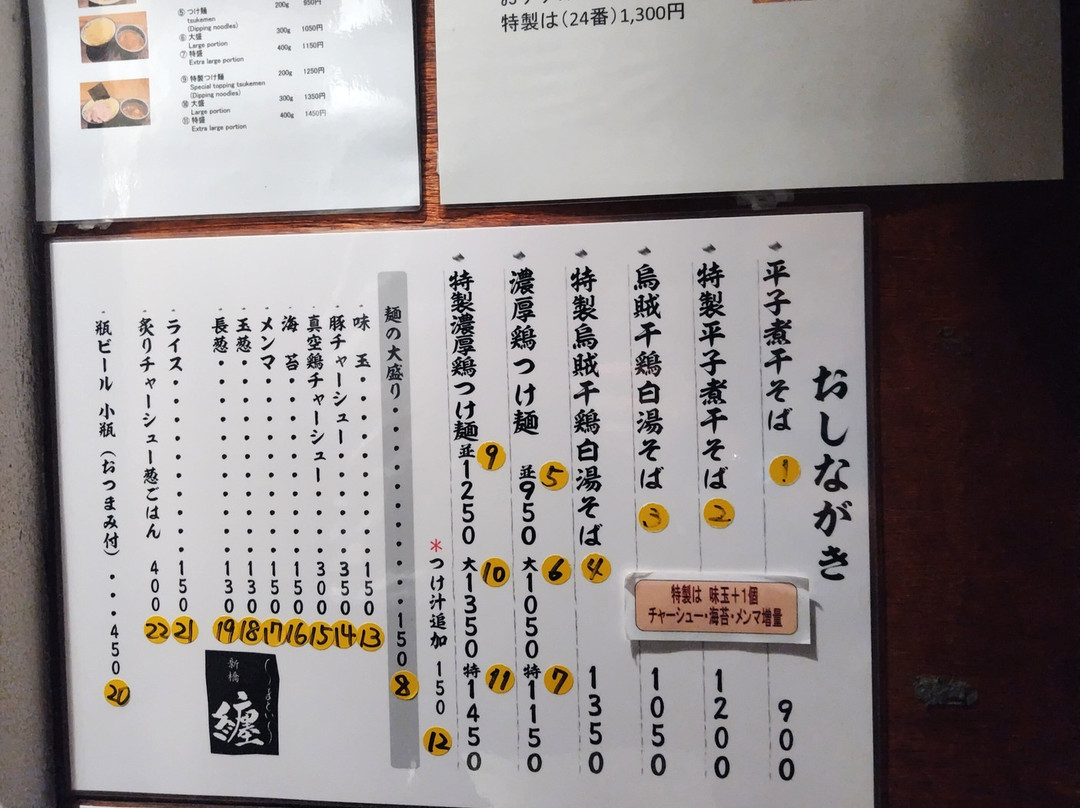 ⑤ つけ麺 200g 950円
tsukemen
(Dipping noodles)
⑥ 大盛 300g 1050円
Large portion
⑦ 特盛 400g 1150円
Extra large portion
⑨ 特製つけ麺 200g 1250円
Special topping tsukemen
(Dipping noodles)
⑩ 大盛 300g 1350円
Large portion
⑪ 特盛 400g 1450円
Extra large portion
特製は(24番)1,300円
おしながき
平子煮干そば 1 900
特製平子煮干そば 2 1200
烏賊干鶏白湯そば 3 1050
特製烏賊干鶏白湯そば 4 1350
特製は 味玉+1個
チャーシュー・海苔・メンマ増量
濃厚鶏つけ麺 並950 5 大1050 6 特1150 7
特製濃厚鶏つけ麺 並1250 9 大1350 10 特1450 11
*つけ汁追加 150 12
麺の大盛り・・・・・・・・・・・150 8
味 玉・・・・・・・150 13
豚チャーシュー・・・・・350 14
真空鶏チャーシュー・・・・300 15
海 苔・・・・・・・150 16
メンマ・・・・・・・150 17
玉葱・・・・・・・・130 18
長葱・・・・・・・・130 19
ライス・・・・・・・150 21
炙りチャーシュー葱ごはん 400 22
瓶ビール 小瓶(おつまみ付)・・・450 20
新橋
纏
〜まとい〜